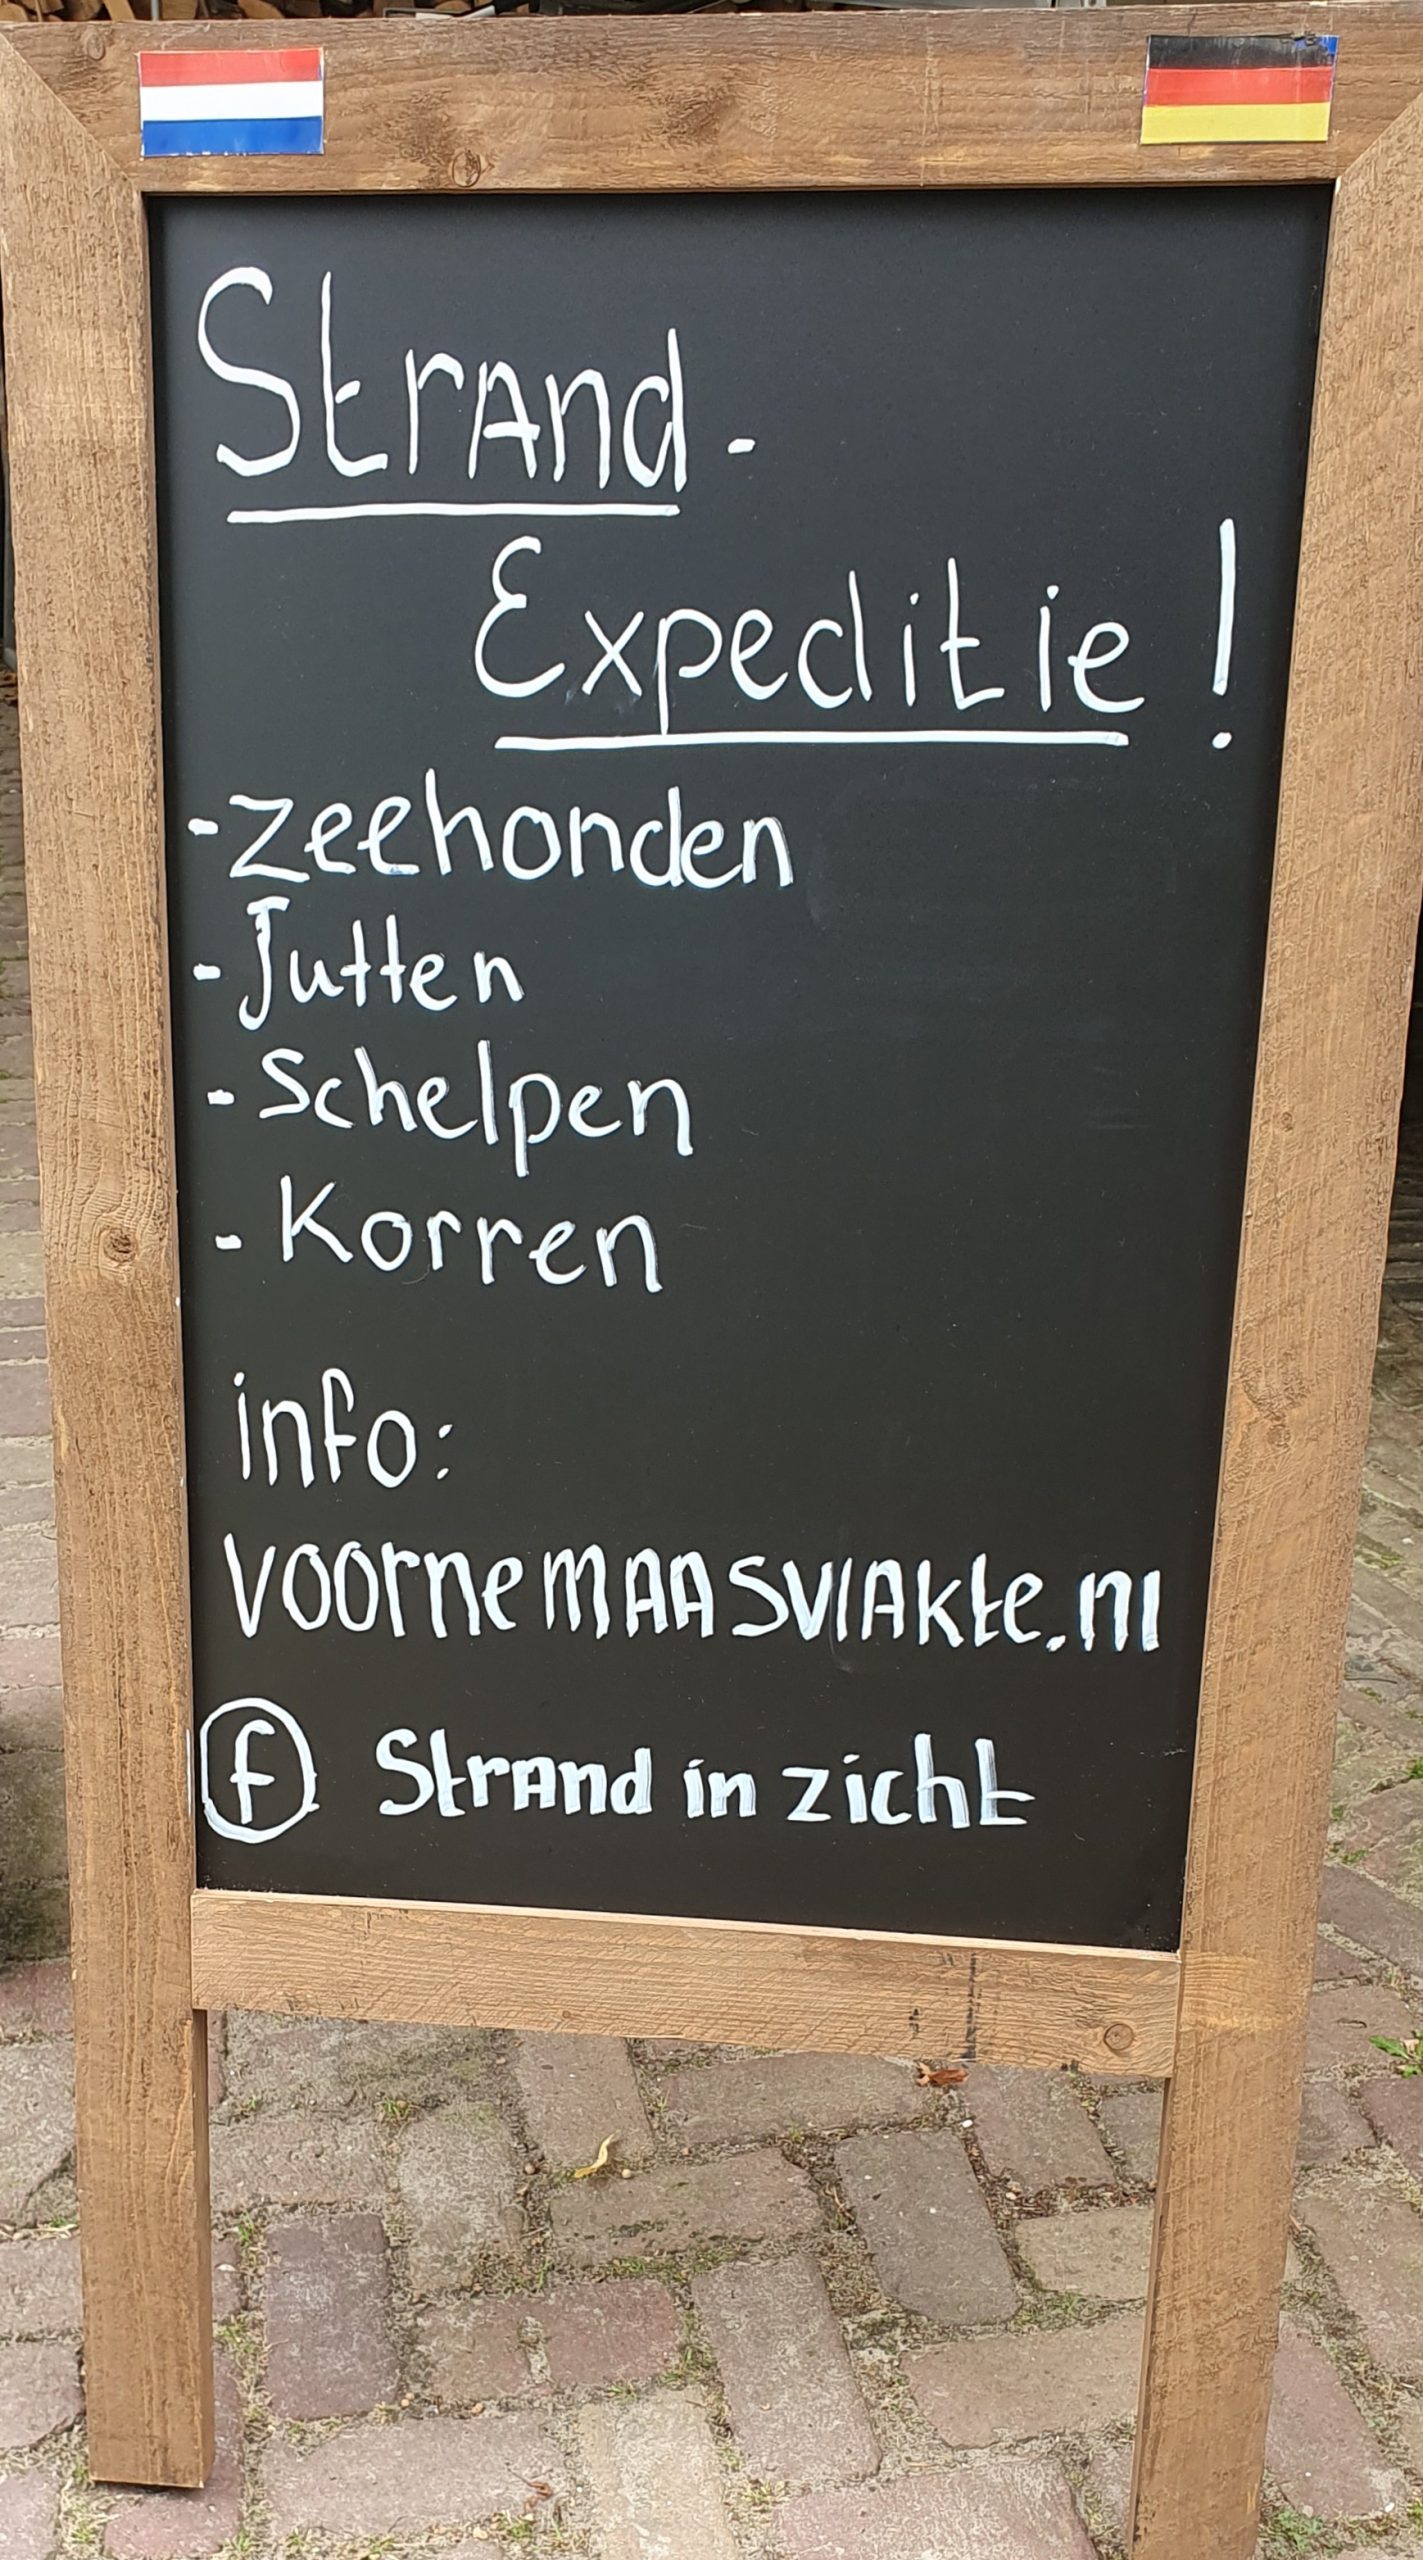 Strand -
Expeditie !
- Zeehonden
- Jutten
- Schelpen
- Korren
info:
voornemaasvlakte.nl
f Strand in zicht